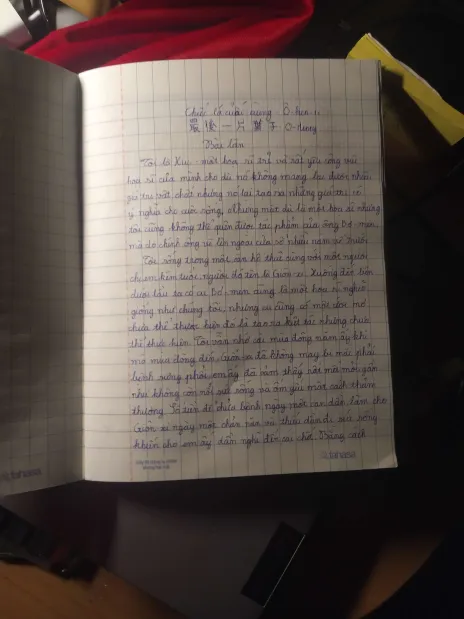 Chiếc lá cuối cùng O-hen-ri
最後一片葉子
Bài làm
Tôi là Xiu, một họa sĩ trẻ và rất yêu công việc
họa sĩ của mình cho dù nó không mang lại được nhiều
giá trị vật chất nhưng nó lại tạo ra những giá trị, có
ý nghĩa cho cuộc sống, nhưng mặc dù là một họa sĩ nhưng
tôi cũng không thể quên được tác phẩm của ông Bơ-men
mà do chính ông vẽ lên ngoài cửa sổ nhiều năm về trước
Tôi sống trong một căn hộ thuê cùng với một người
chị em kém tuổi, người đó tên là Giôn-xi. Xuống đến tầng
dưới lầu ta có cụ Bơ-men cũng là một họa sĩ nghèo
giống như chúng tôi, nhưng cụ cũng có một ước mơ
chưa thể thực hiện đó là tạo ra kiệt tác nhưng chưa
thể thực hiện. Tôi vẫn nhớ cái mùa đông năm ấy khi
mà mùa đông đến Giôn-xi đã không may bị mắc phải
bệnh sưng phổi, em ấy đã cảm thấy rất mệt mỏi gần
như không còn nổi sức sống và ốm yếu một cách thảm
thương. Số tiền để chữa bệnh ngày một cạn dần, làm cho
Giôn-xi ngày một chán nản và thiếu dần đi sức sống
khiến cho em ấy dần nghĩ đến cái chết. Bằng cách